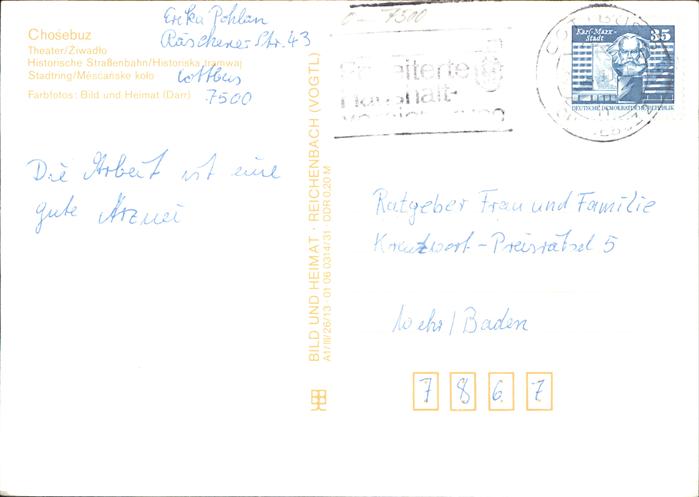 Chośebuz
Theater/Źiwadło
Historische Straßenbahn/Historiska tramwaj
Stadtring/Měsćańske koło
Farbfotos: Bild und Heimat (Darr)
Erika Pohlan
Räschener Str. 43
Cottbus
7500
0 - 7500
Erweiterte
Haushalt-
versicherung
COTTBUS
Karl-Marx-
Stadt
35
DEUTSCHE DEMOKRATISCHE REPUBLIK
Die Arbeit ist eine
gute Arznei
BILD UND HEIMAT · REICHENBACH (VOGTL)
A1/III/26/13 01 06 0314/31 DDR 0,20 M
Ratgeber Frau und Familie
Kreuzwort-Preisrätsel 5
Wehr/Baden
7 8 6 7